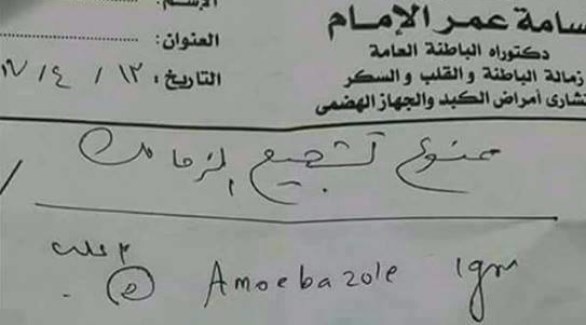 الإسم:
سامة عمر الإمام
دكتوراه الباطنة العامة
العنوان:
زمالة الباطنة والقلب والسكر
التاريخ: ١٣ / ٤ /
تشارى أمراض الكبد والجهاز الهضمى
ممنوع تشجيع الزمالك
Amoebazole 1gm
٣ علب